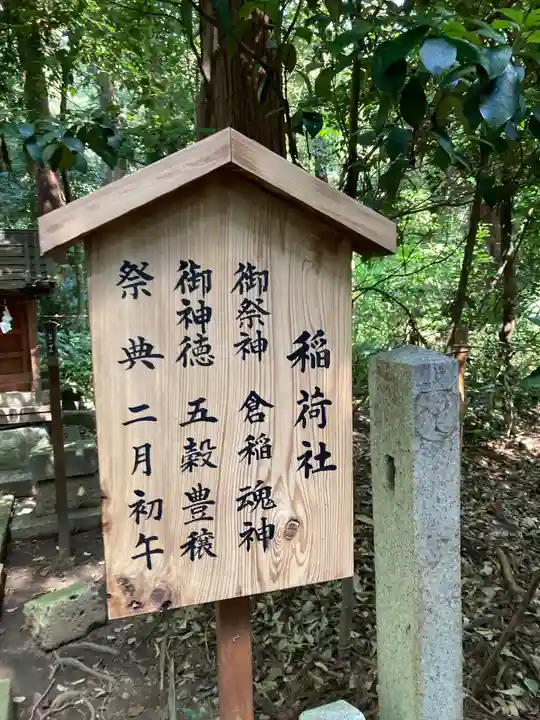 稲荷社
御祭神 倉稲魂神
御神徳 五穀豊穣
祭典 二月初午